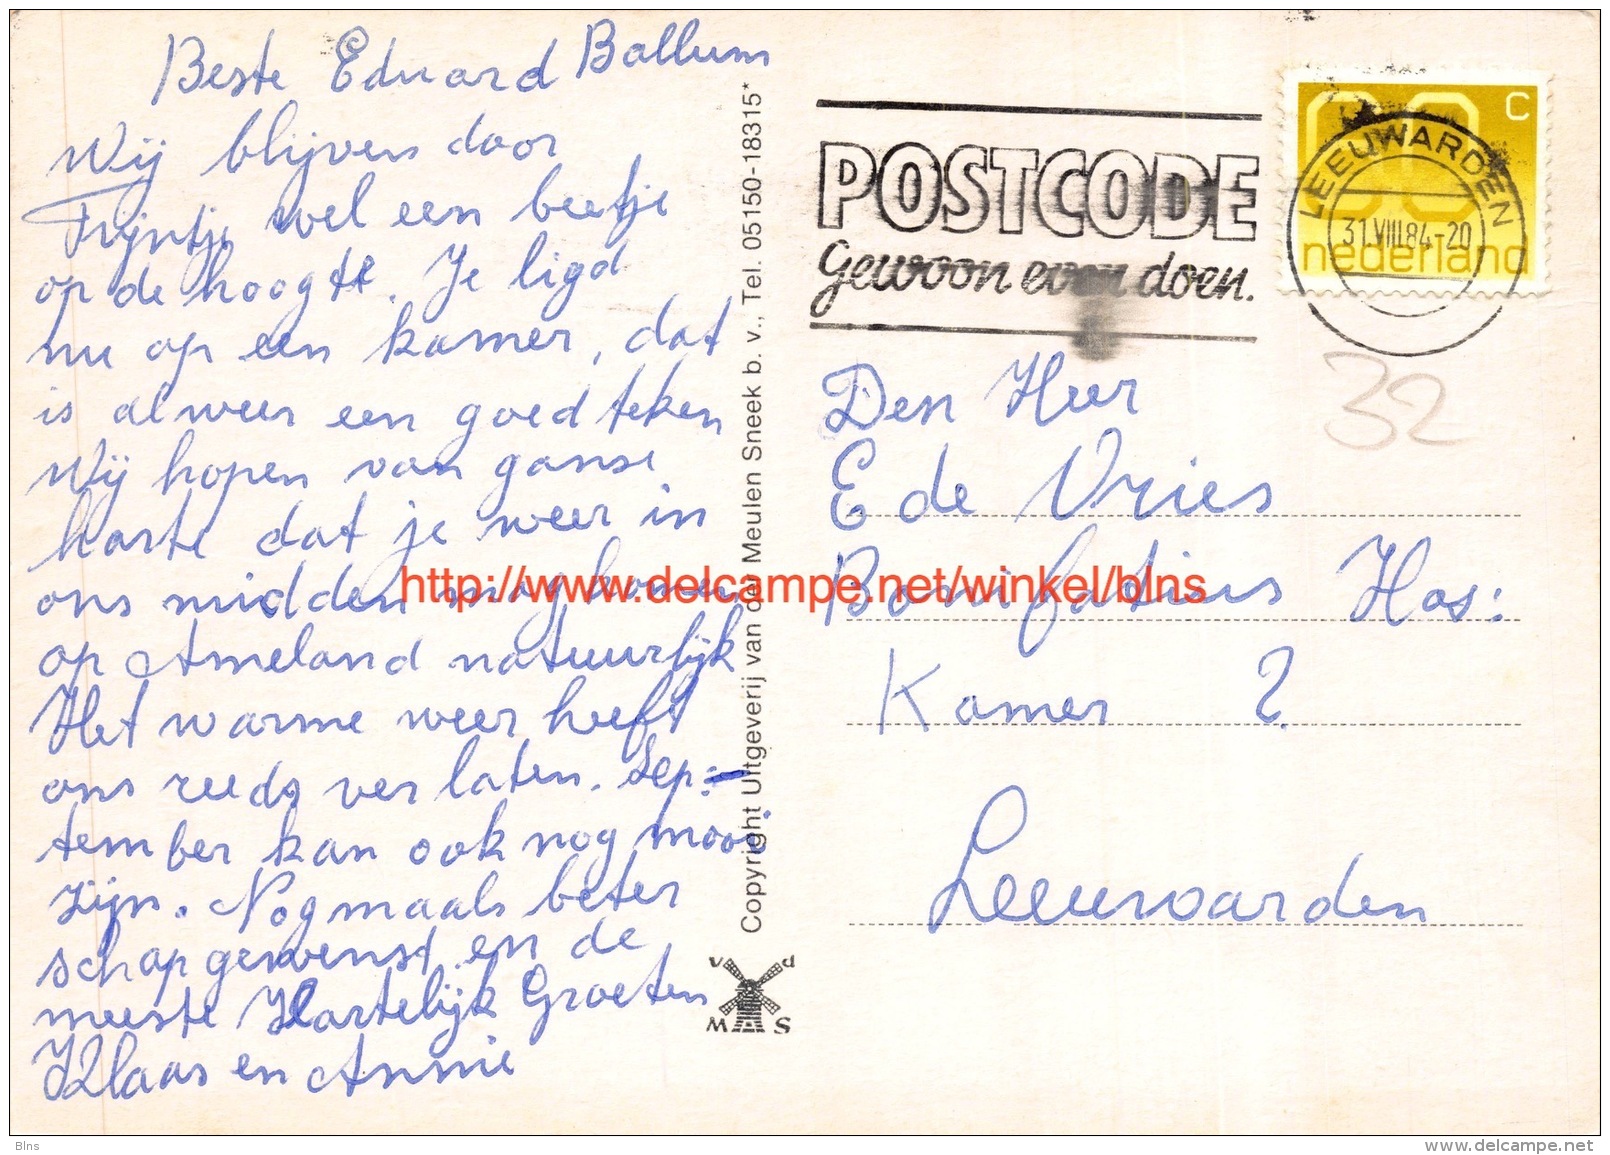 Beste Eduard Ballum
Wij blijven door
Trijntje wel een beetje
op de hoogte. Je ligd
nu op een kamer, dat
is al weer een goed teken
Wij hopen van ganse
harte dat je weer in
ons midden mag komen
op Ameland natuurlijk
Het warme weer heeft
ons reeds ver laten. Sep=
tember kan ook nog mooi
zijn. Nogmaals beter
schap gewenst en de
meeste Hartelijk Groeten
Klaas en Annie
Copyright Uitgeverij van der Meulen Sneek b. v., Tel. 05150-18315*
v d
M S
POSTCODE
gewoon even doen.
60 C
nederland
LEEUWARDEN
31.VIII.84-20
32
Den Heer
E de Vries
Bonifatius Hos:
Kamer ?
Leeuwarden
http://www.delcampe.net/winkel/blns
Blns
www.delcampe.net